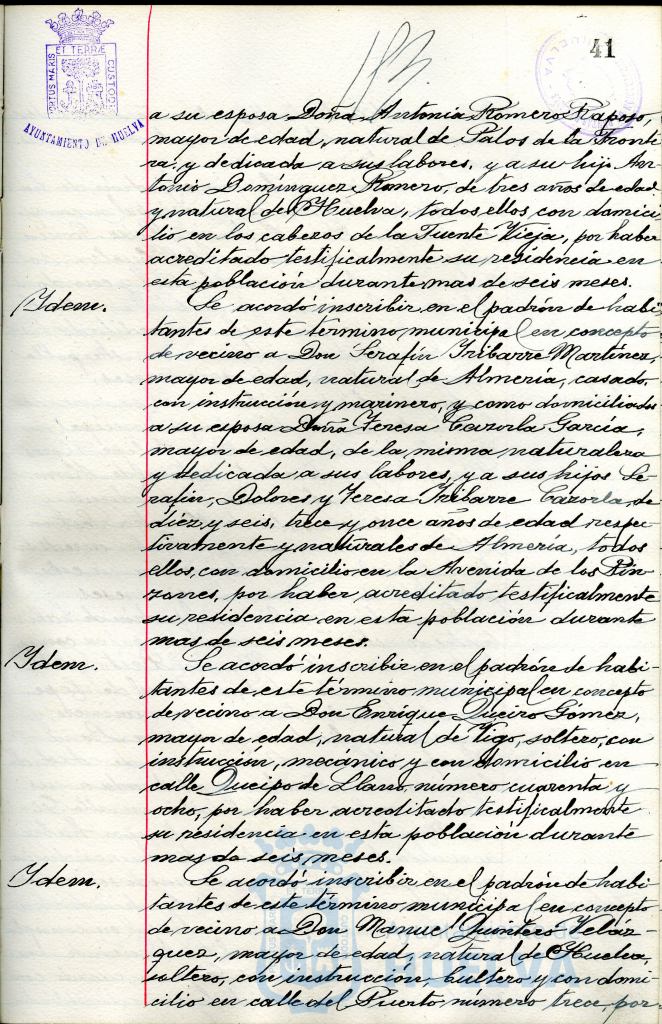 41
PORTUS MARIS ET TERRÆ CUSTODIA
AYUNTAMIENTO DE HUELVA
a su esposa Doña Antonia Romero Raposo,
mayor de edad, natural de Palos de la Fronte
ra, y dedicada a sus labores, y a su hijo An-
tonio Domínguez Romero, de tres años de edad
y natural de Huelva, todos ellos, con domici-
lio en los cabezos de la Fuente Vieja, por haber
acreditado testificalmente su residencia en
esta población durante mas de seis meses.
Idem.
Se acordó inscribir en el padrón de habi-
tantes de este término municipal en concepto
de vecino a Don Serafín Iribarre Martínez,
mayor de edad, natural de Almería, casado,
con instrucción y marinero, y como domiciliados
a su esposa Doña Teresa Cazorla García,
mayor de edad, de la misma naturaleza
y dedicada a sus labores, y a sus hijos Se-
rafín, Dolores y Teresa Iribarre Cazorla, de
diez y seis, trece y once años de edad respec-
tivamente y naturales de Almería, todos
ellos, con domicilio en la Avenida de los Pin-
zones, por haber acreditado testificalmente
su residencia en esta población durante
mas de seis meses.
Idem.
Se acordó inscribir en el padrón de habi-
tantes de este término municipal en concepto
de vecino a Don Enrique Queiro Gómez,
mayor de edad, natural de Vigo, soltero, con
instrucción, mecánico y con domicilio en
calle Queipo de Llano, número cuarenta y
ocho, por haber acreditado testificalmente
su residencia en esta población durante
mas de seis meses.
Idem.
Se acordó inscribir en el padrón de habi-
tantes de este término municipal en concepto
de vecino a Don Manuel Quintero Veláz-
quez, mayor de edad, natural de Huelva,
soltero, con instrucción, hultero y con domi-
cilio en calle del Puerto, número trece, por